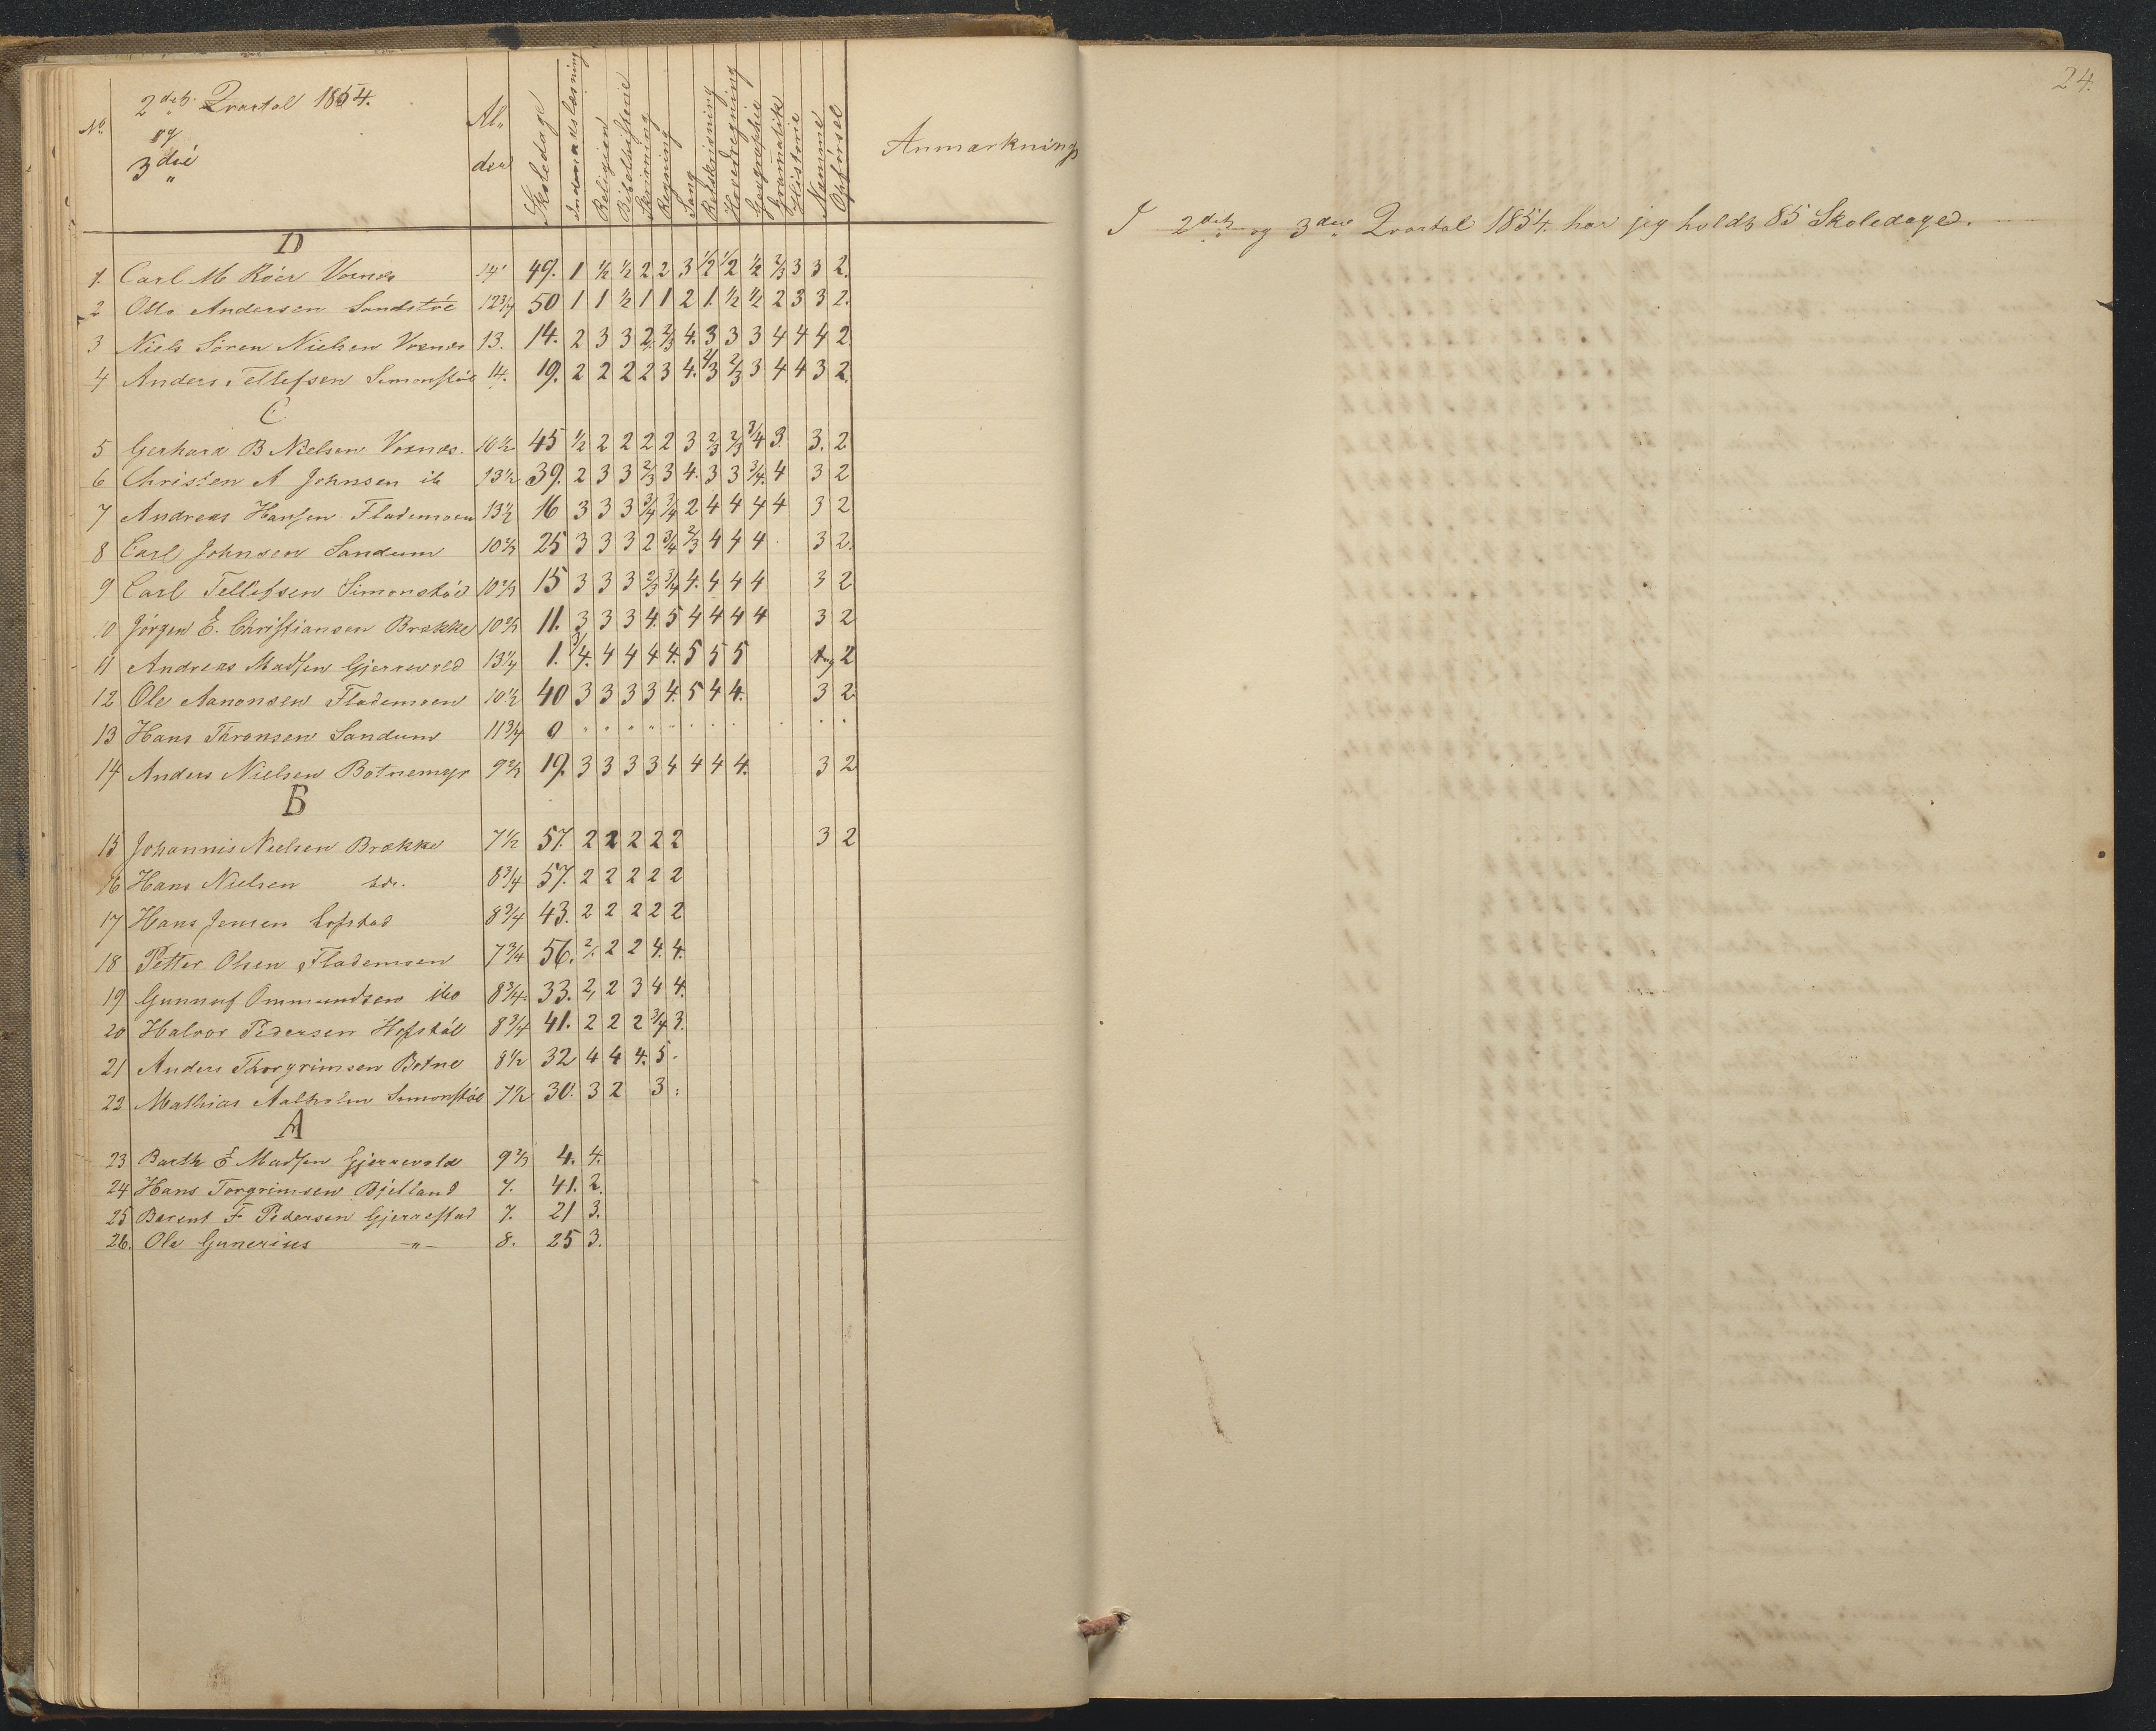 2det Qvartal 1854.
og
3die
No. Alder Skoledage Indenadslæsning Religion Bibelhistorie Skrivning Regning Sang Retskrivning Hovedregning Geographie Gramatik Historie Næmme Opførsel Anmærkning
D
1. Carl M Röer Vosnes 14 49. 1 ½ ½ 2 2 3 ½ ½ ½ 2/3 3 3 2.
2 Otto Andersen Sandstöe 12 3/4 50 1 1 ½ 1 1 2 1. ½ ½ 2 3 3 2.
3 Niels Sören Nielsen Vosnes 13. 14. 2 3 3 2 2/3 4. 3 3 3 4 4 4 2.
4 Anders Tellefsen Simonstöe 14. 19. 2 2 2 2 3 4. 2/3 2/3 3 4 4 3 2.
C
5 Gerhard B Nielsen Vosnes. 10½ 45 ½ 2 2 2 2 3 2/3 2/3 3/4 3. 3. 2
6 Christen A Johnsen ib 13½ 39. 2 3 3 2/3 3 4. 3 3 3/4. 4 3 2
7 Andreas Hansen Flademoen 13½ 16 3 3 3 3/4 3/4 2 4 4 4 4 3 2
8 Carl Johnsen Sandum 10 2/3 25 3 3 3 2 3/4 2/3 4 4 4 3 2.
9 Carl Tellefsen Simonstöe 10 2/3 15 3 3 3 2/3 3/4 4. 4 4 4 3 2
10 Jörgen E. Christiansen Brække 10 2/3 11. 3 3 3 4. 5 4 4 4 4 3 2
11 Andreas Madsen Gjerrevold 13 1/4 1. 3/4. 4 4 4 4. 5 5 5 2
12 Ole Aanonsen Flademoen 10½ 40 3 3 3 3 4. 5 4 4. 3 2
13 Hans Taronsen Sandum 11 3/4 0 " " " " " . . . . . .
14 Anders Nielsen Botnemyr 9 2/3 19. 3 3 3 3 4 4 4 4. 3 2
B
15 Johannis Nielsen Brække 7½ 57. 2 2 2 2 2 3 2
16 Hans Nielsen 8 3/4 57. 2 2 2 2 2
17 Hans Jensen Lofstad 8 3/4 43. 2 2 2 2 2
18 Petter Olsen Flademoen 7 3/4 56. 2 2 4. 4.
19 Gunnuf Ommundsen ibo 8 3/4. 33. 2, 2 3 4 4.
20 Halvor Pedersen Hofstöl 8 3/4 41. 2 2 2 3/4 3.
21 Anders Thorgrimsen Botne 8½ 32 4 4 4. 5.
22 Mathias Aalholm Simonstöe 7½ 30. 3 2 3 :
A
23 Barth E Madsen Gjerrevold 9 2/3 4. 4.
24 Hans Torgrimsen Bjelland 7. 41. 2.
25 Berent F Pedersen Gjerrestad 7. 21 3.
26. Ole Gunerius —"— 8. 25 3.
24.
I 2det og 3die Qvartal 1854. har jeg holdt 85 Skoledage.